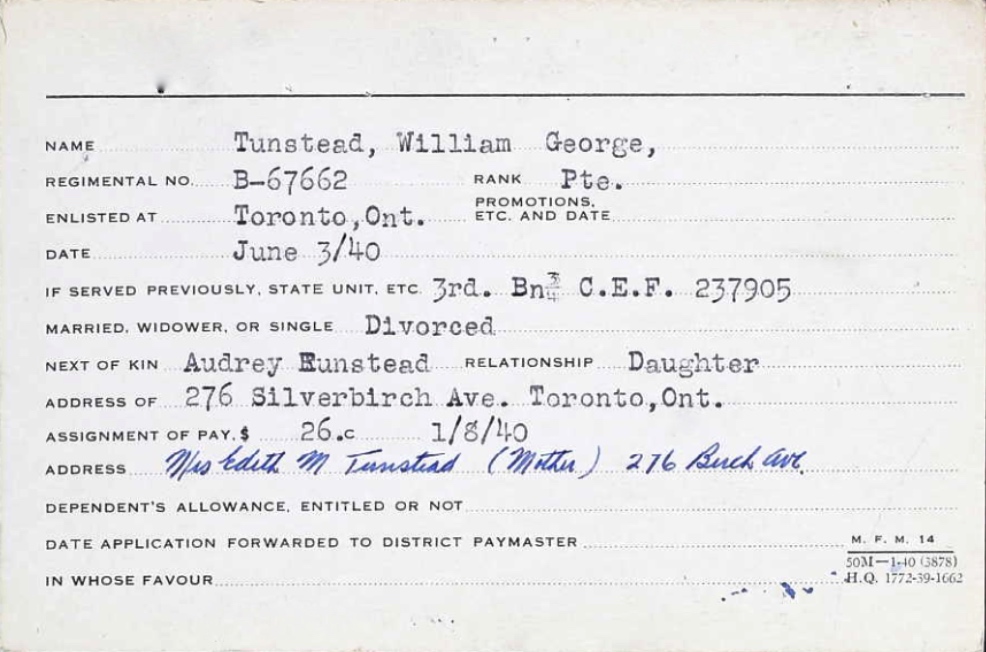 NAME Tunstead, William George,
REGIMENTAL NO. B-67662 RANK Pte.
ENLISTED AT Toronto,Ont. PROMOTIONS, ETC. AND DATE
DATE June 3/40
IF SERVED PREVIOUSLY, STATE UNIT, ETC. 3rd. Bn C.E.F. 237905
MARRIED, WIDOWER, OR SINGLE Divorced
NEXT OF KIN Audrey Eunstead RELATIONSHIP Daughter
ADDRESS OF 276 Silverbirch Ave. Toronto,Ont.
ASSIGNMENT OF PAY, $ 26.c 1/8/40
ADDRESS Mrs Edith M Tunstead (Mother) 276 Birch Ave.
DEPENDENT'S ALLOWANCE, ENTITLED OR NOT
DATE APPLICATION FORWARDED TO DISTRICT PAYMASTER
IN WHOSE FAVOUR
M. F. M. 14
50M—1-40 (3878)
H.Q. 1772-39-1662